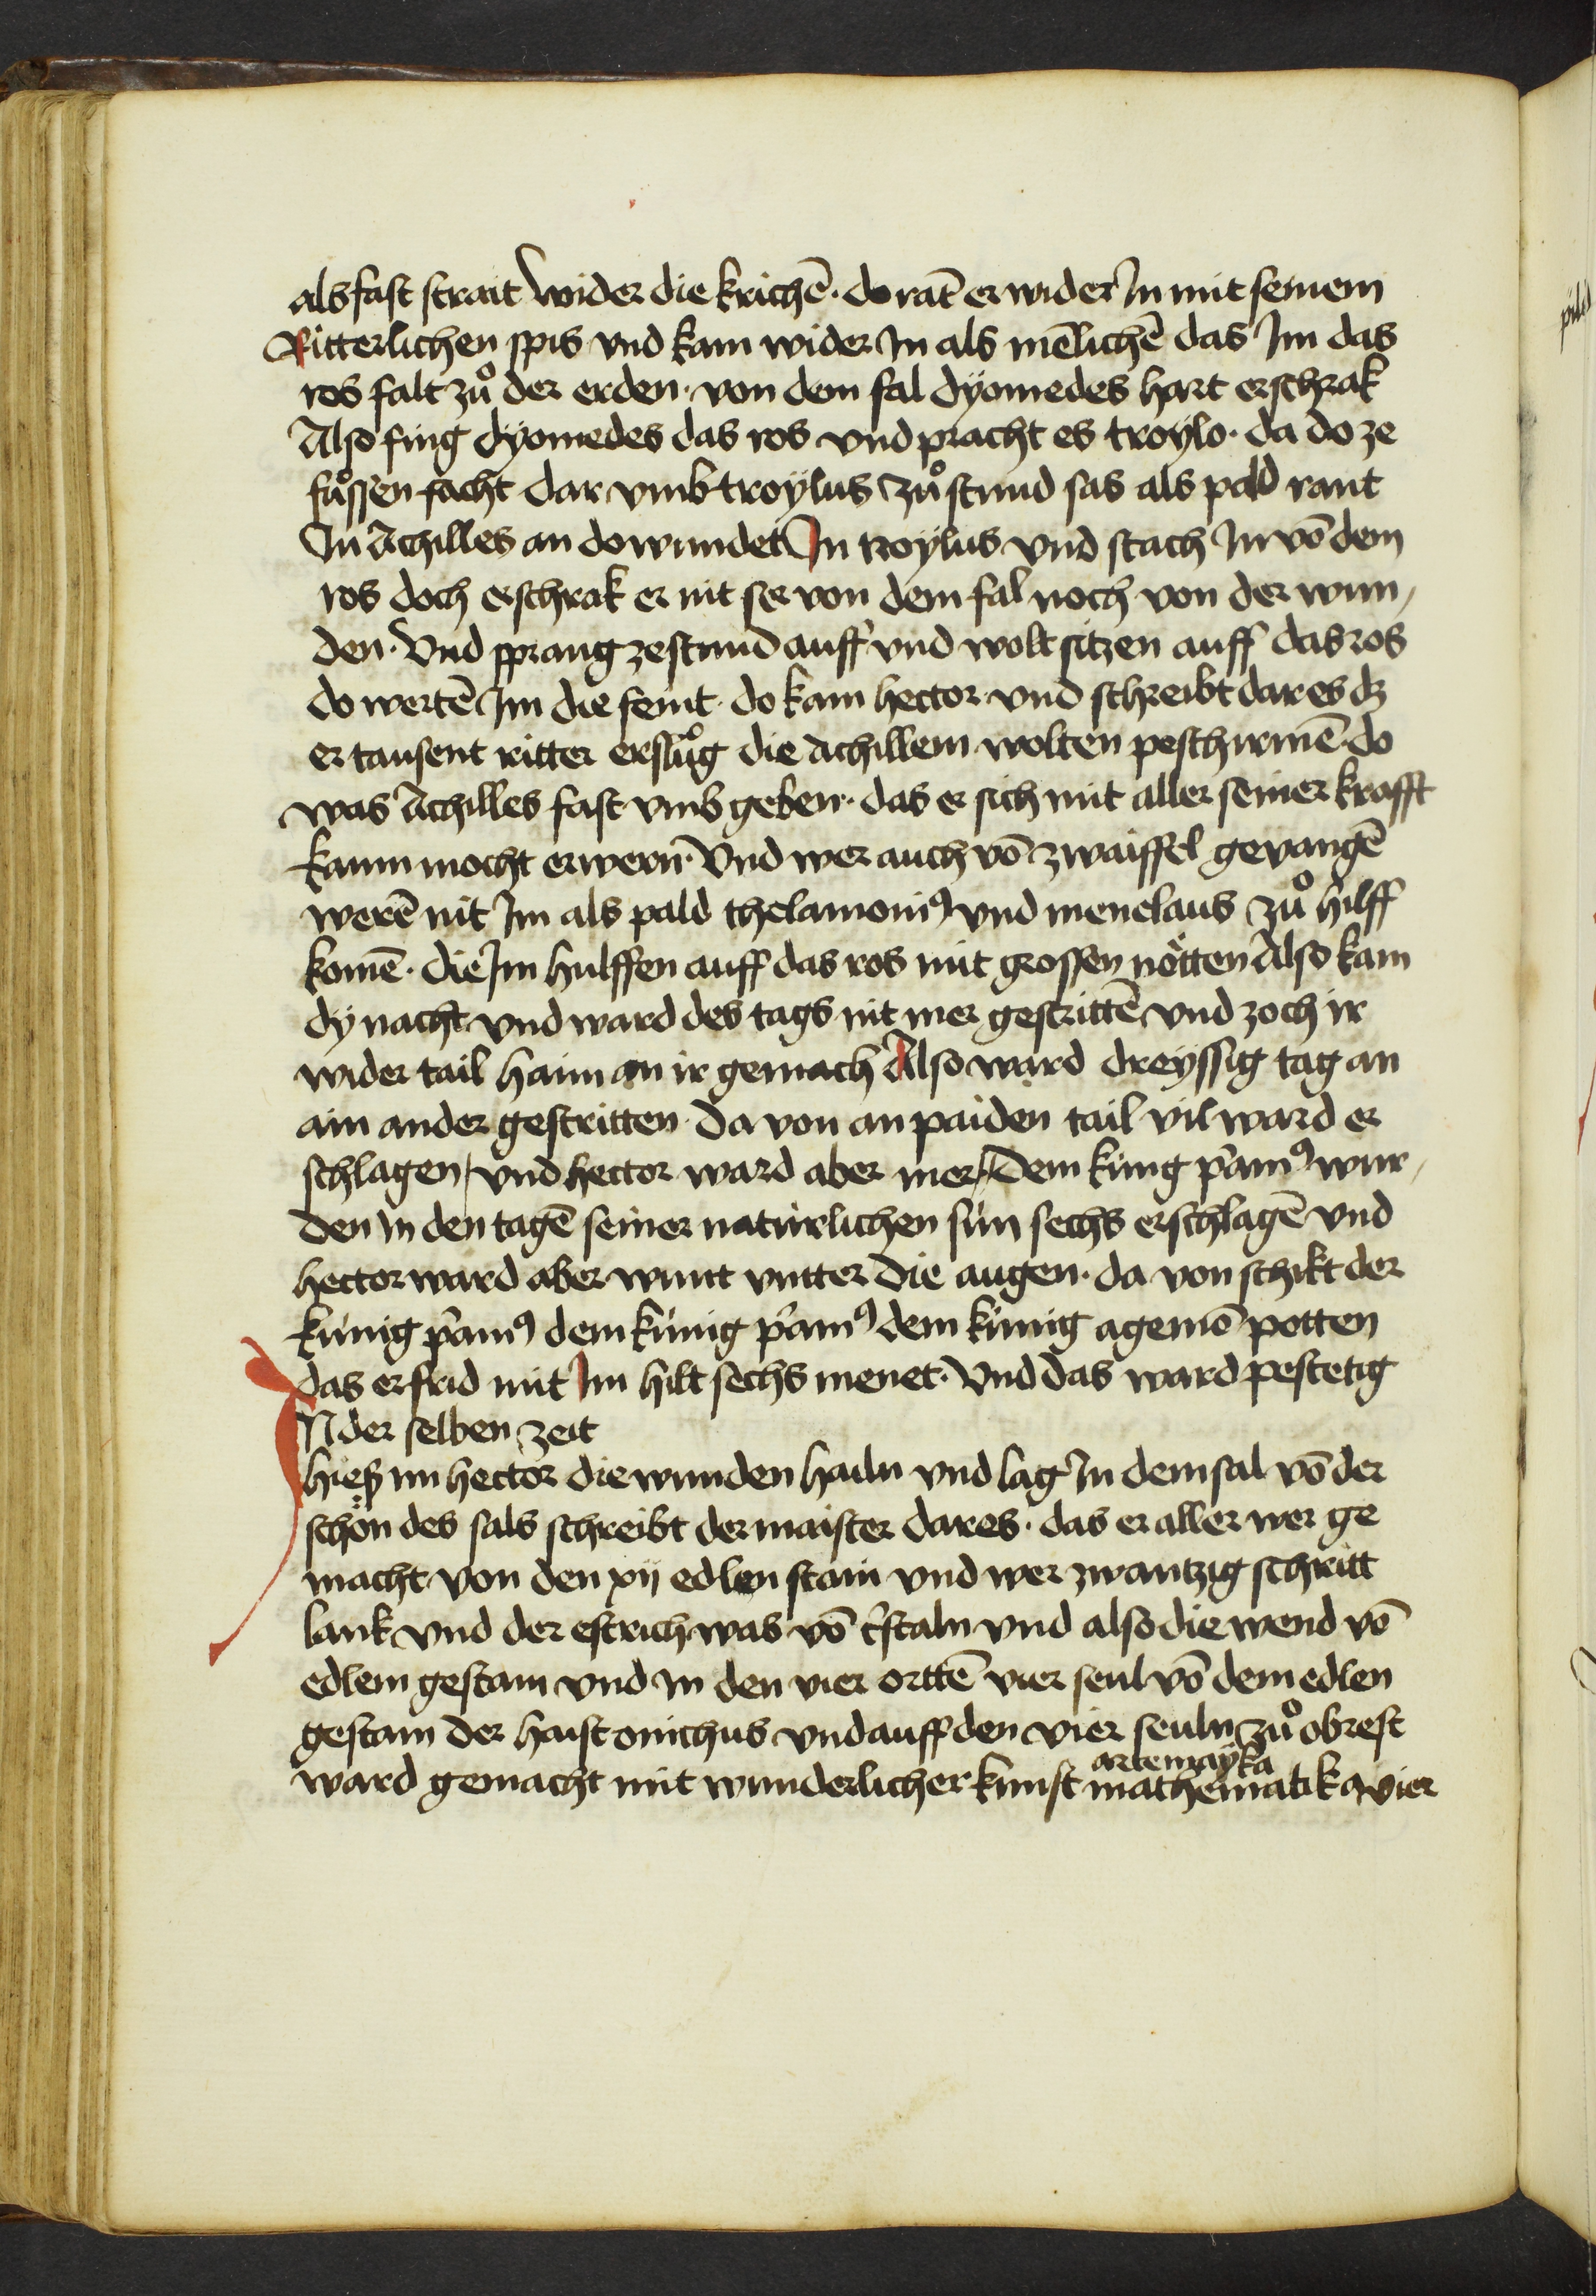 als fast strait wider die krichē · do rāt er wider In mit seinem
Ritterlichen spis vnd kam wider In als mēlichē das Im das
ros falt zuͦ der erden · von dem fal dyomedes hart erschrak
Also fing dyomedes das ros vnd pracht es troylo · da do ze
fuͦssen facht dar vmb troylus zuͦ stund sas als pald rant
In Achilles an do wundet In troylus vnd stach In vō dem
ros doch erschrak er nit ser von dem fal noch von der wun/
den · Vnd sprang zestund auff vnd wolt sitzen auff das ros
do wertē Im die feint · do kam hector vnd schreibt dares dz
er tausent ritter ersluͦg die achillem wolten peschirmē do
was Achilles fast vmb geben · das er sich mit aller seiner krafft
kaum mocht erwern · Vnd wer auch vō zwaiffel gevangē
werē nit Im als pald thelamoniꝰ vnd menelaus zuͦ hilff
komē · die Im hulffen auff das ros mit grossen nötten Also kam
dy nacht vnd ward des tags nit mer gestrittē vnd zoch ir
wider tail haim an ir gemach Also ward dreyssig tag an
ain ander gestritten · Da von an paiden tail vil ward er
schlagen / vnd hector ward aber mer / Dem küng p̃amꝰ wur/
den In den tagē seiner natürlichen sün sechs erschlagē vnd
hector ward aber wunt vntter die augen · da von schikt der
künig p̃amꝰ dem künig p̃amꝰ dem künig agemō potten
das er frid mit Im hilt sechs menet · Vnd das ward pestetig
IN der selben zeit
hieß im hector die wunden hailn vnd lag In dem sal vō der
schön des sals schreibt der maister dares · das er aller wer ge
macht von den xij edlen stain vnd wer zwantzig schritt
lank vnd der estrich was vō c̃staln vnd also die wend vō
edlem gestain vnd In den vier orttē vier seul vō dem edlen
gestain der haist onichus vnd auff den vier seuln zuͦ obrest
artemayka
ward gemacht mit wunderlicher kunst mathematika vier